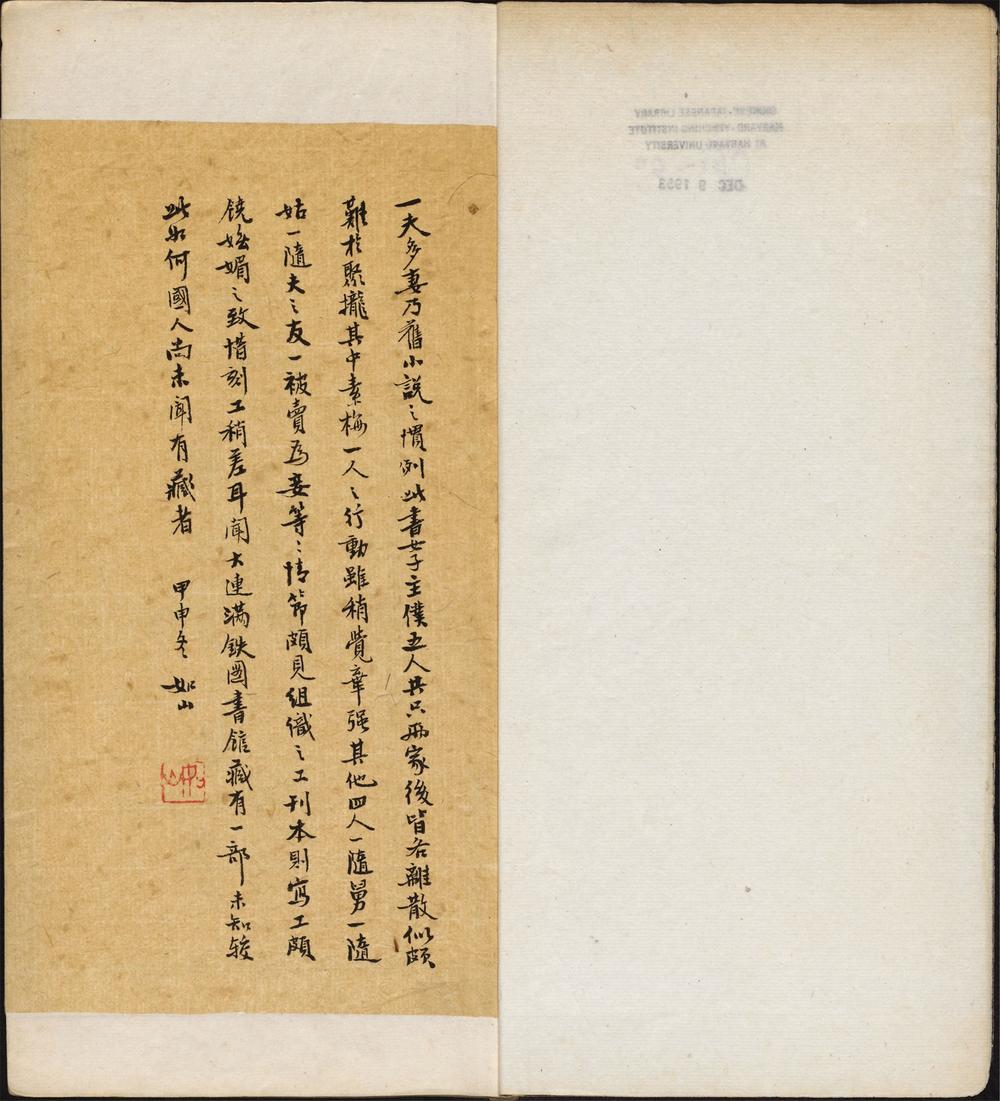 一夫多妻乃舊小説之慣例此書女子主僕五人共只兩家後皆各離散似頗
難於聚攏其中素梅一人之行動雖稍覺牽强其他四人一隨舅一隨
姑一隨夫之友一被賣爲妾等之情節頗見組織之工刊本則寫工頗
饒嫵媚之致惜刻工稍差耳聞大連满鉄图書館藏有一部未知較
此如何國人尚未聞有藏者
甲申冬 如山
CHINESE-JAPANESE LIBRARY
HARVARD-YENCHING INSTITUTE
AT HARVARD UNIVERSITY
DEC 9 1953